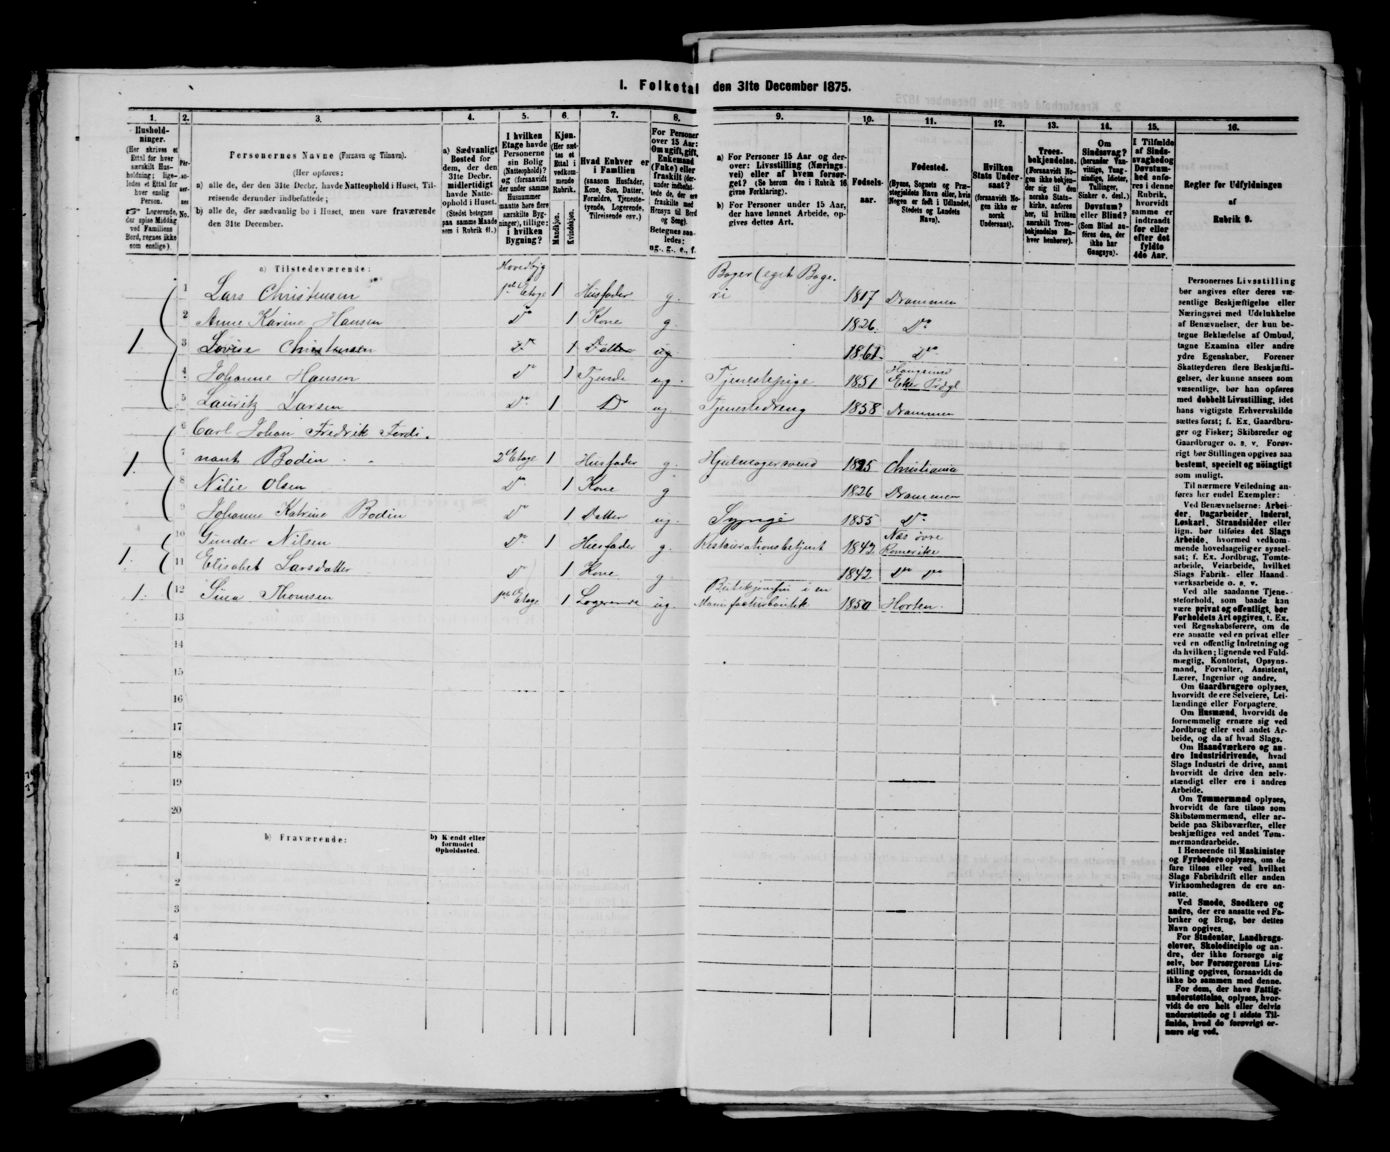 I. Folketal den 31te December 1875.
1. 2. 3. 4. 5. 6. 7. 8. 9. 10. 11. 12. 13. 14. 15. 16.
Hushold-
ninger.
(Her skrives et
Ettal for hver
særskilt Hus-
holdning; lige-
ledes et Ettal for
hver enslig
Person.
Logerende,
der spise Middag
ved Familiens
Bord, regnes ikke
som enslige).
Per-
soner-
nes
No.
Personernes Navne (Fornavn og Tilnavn).
(Her opføres:
a) alle de, der den 31te Decbr. havde Natteophold i Huset, Til-
reisende derunder indbefattede;
b) alle de, der sædvanlig bo i Huset, men vare fraværende
den 31te December.
a) Sædvanligt
Bosted for
dem, der den
31te Decbr.
midlertidigt
havde Natte-
ophold i Huset.
I hvilken
Etage havde
Personerne
sin Bolig
(Natteophold)?
og (forsaavidt
der under samme
Husnummer
maatte høre flere
særskilte Byg-
ninger), tillige:
i hvilken
Bygning?
Kjøn.
(Her sæt-
tes et
Ettal i
vedkom-
mende
Rubrik.
Mandkjøn. Kvindekjøn.
Hvad Enhver er
i Familien
(saasom Husfader,
Kone, Søn, Datter,
Forældre, Tjeneste-
tyende, Logerende,
Tilreisende osv.)
For Personer
over 15 Aar:
Om ugift, gift,
Enkemand
(Enke) eller
fraskilt
a) For Personer 15 Aar og der-
over: Livsstilling (Nærings-
vei) eller af hvem forsør-
get? (Se herom den i Rubrik 16
givne Forklaring).
b) For Personer under 15 Aar,
der have lønnet Arbeide, op-
gives dettes Art.
Fødsels-
aar.
Fødested.
(Byens, Sognets og Præ-
stegjeldets Navn eller, hvis
Nogen er født i Udlandet,
Stedets og Landets
Navn).
Hvilken
Stats Under-
saat?
(forsaavidt No-
gen ikke er
norsk
Undersaat).
Troes-
bekjendelse.
(Forsaavidt No-
gen ikke bekjen-
der sig til den
norske Stats-
kirke, anføres
her, til hvilken
særskilt Troes-
bekjendelse Ha
ver henhører).
Om
Sindssvag?
(herunder Van-
vittige, Tung-
sindige, Idioter,
Tullinger,
Sinker o. desl.)
Døvstum?
eller Blind?
(Som Blind an-
føres den, der
ikke har
Gangsyn).
I Tilfælde
af Sinds-
svaghed og
Døvstum-
hed anfø-
res i denne
Rubrik,
hvorvidt
samme er
indtraadt
før eller
efter det
fyldte
4de Aar.
Regler for Udfyldningen
af
Rubrik 9.
a) Tilstedeværende:
Hovedbyg
1 Lars Christensen 1ste Etage 1 Husfader g. Bager (eget Bage-
ri 1817 Drammen
2 Anne Karine Hansen Do 1 Kone g. 1826. Do
1 3 Lovise Christensen Do 1 Datter ug 1861. Do
4 Johanne Hansen Do 1 Tjende ug. Tjenestepige 1851 Eker Prdgl
5 Lauritz Larsen Do 1 Do ug Tjenestedreng 1858 Drammen
6 Carl Johan Fredrik Ferdi-
1. 7 nant Bodin 2 Etage 1 Husfader g. Hjulmagersvend 1825 Christiania
8 Nilie Olsen Do 1 Kone g 1826 Drammen
9 Johanne Katrine Bodin Do 1 Datter ug. Sypige 1855 Do
10 Gunder Nilsen Do 1 Husfader g. Restaurationsbetjent 1842 Næs øvre
Romerike
1. 11 Elisabet Larsdatter Do 1 Kone g 1842 Do Do
1. 12 Sina Thomsen 1ste Etage 1 Logerende ug. Butikjomfru i en
Manufacturbutik 1850 Horten.
13
14
15
16
17
18
19
20
b) Fraværende:
b) Kjendt eller
formodet
Opholdssted.
1
2
3
4
5
6
Personernes Livsstilling
bør angives efter deres væ-
sentlige Beskjæftigelse eller
Næringsvei med Udelukkelse
af Benævnelser, der kun be-
tegne Beklædelse af Ombud,
tagne Examina eller andre
ydre Egenskaber. Forener
Skatteyderen flere Beskjæfti-
gelser, der kunne ansees som
væsentlige, bør han opføres
med dobbelt Livsstilling, idet
hans vigtigste Erhvervskilde
sættes først; f. Ex. Gaardbru-
ger og Fisker; Skibsreder og
Gaardbruger o. s. v. Forøv-
rigt bør Stillingen opgives saa
bestemt, specielt og nøiagtigt
som muligt.
Til nærmere Veiledning an-
føres her endel Exempler:
Ved Benævnelserne: Arbei-
der, Dagarbeider, Inderst,
Løskarl, Strandsidder eller
lign. bør tilføies det Slags
Arbeide, hvormed vedkom-
mende hovedsagelig er syssel-
sat; f. Ex. Jordbrug, Tomte-
arbeide, Veiarbeide, hvilket
Slags Fabrik- eller Haand-
værksarbeide o. s. v.
Ved alle saadanne Tjene-
steforhold, som baade kan
være privat og offentligt, bør
Forholdets Art opgives, t. Ex.
ved Regnskabsførere, om de
ere ansatte ved en privat eller
ved en offentlig Indretning og
da hvilken; lignende ved Fuld-
mægtig, Kontorist, Opsyns-
mand, Forvalter, Assistent,
Lærer, Ingeniør og andre.
Om Gaardbrugere oplyses,
hvorvidt de ere Selveiere, Lei-
lændinge eller Forpagtere.
Om Husmænd, hvorvidt de
fornemmelig ernære sig ved
Jordbrug eller ved andet Ar-
beide, og da af hvad Slags.
Om Haandværkere og an-
dre Industridrivende, hvad
Slags Industri de drive, samt
hvorvidt de drive den selv-
stændigt eller ere i andres
Arbeide.
Om Tømmermænd oplyses,
hvorvidt de fare tilsøs som
Skibstømmermænd, eller ar-
beide paa Skibsværfter, eller
beskjæftiges ved andet Tøm-
mermandsarbeide.
I Henseende til Maskinister
og Fyrbødere oplyses, om de
fare tilsøs eller ved hvilket
Slags Fabrikdrift eller anden
Virksomhedsgren de ere an-
satte.
Ved Smede, Snedkere og
andre, der ere ansatte ved Fa-
briker og Brug, bør dettes
Navn opgives.
For Studenter, Landbrugs-
elever, Skoledisciple og an-
dre, der ikke forsørge sig
selv, bør Forsørgerens Livs-
stilling opgives, forsaavidt de
ikke bo sammen med denne.
For dem, der have Fattig-
understøttelse, oplyses, hvor-
vidt de ere helt eller delvis
understøttede og i sidste Til-
fælde, hvad de forøvrigt er-
nære sig ved.